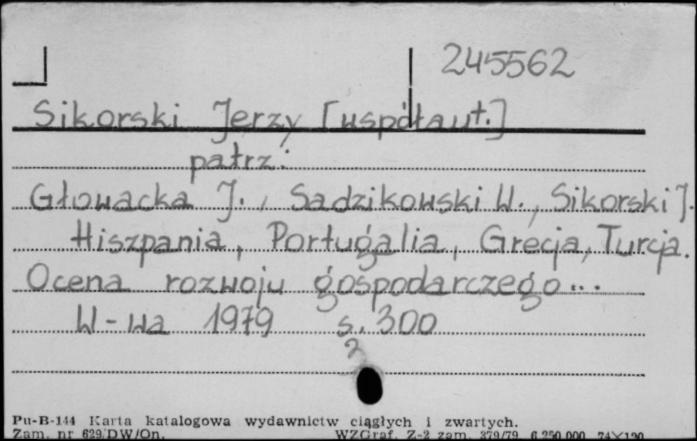 245562
Sikorski Jerzy [współaut.]
patrz:
Głowacka J., Sadzikowski W., Sikorski J.
Hiszpania, Portugalia, Grecja, Turcja.
Ocena rozwoju gospodarczego...
W-wa 1979 s. 300
2
Pu-B-144 Karta katalogowa wydawnictw ciągłych i zwartych.
Zam. nr 629/DW/On. WZGraf. Z-2 zam. 379/79 6.250.000 74×120